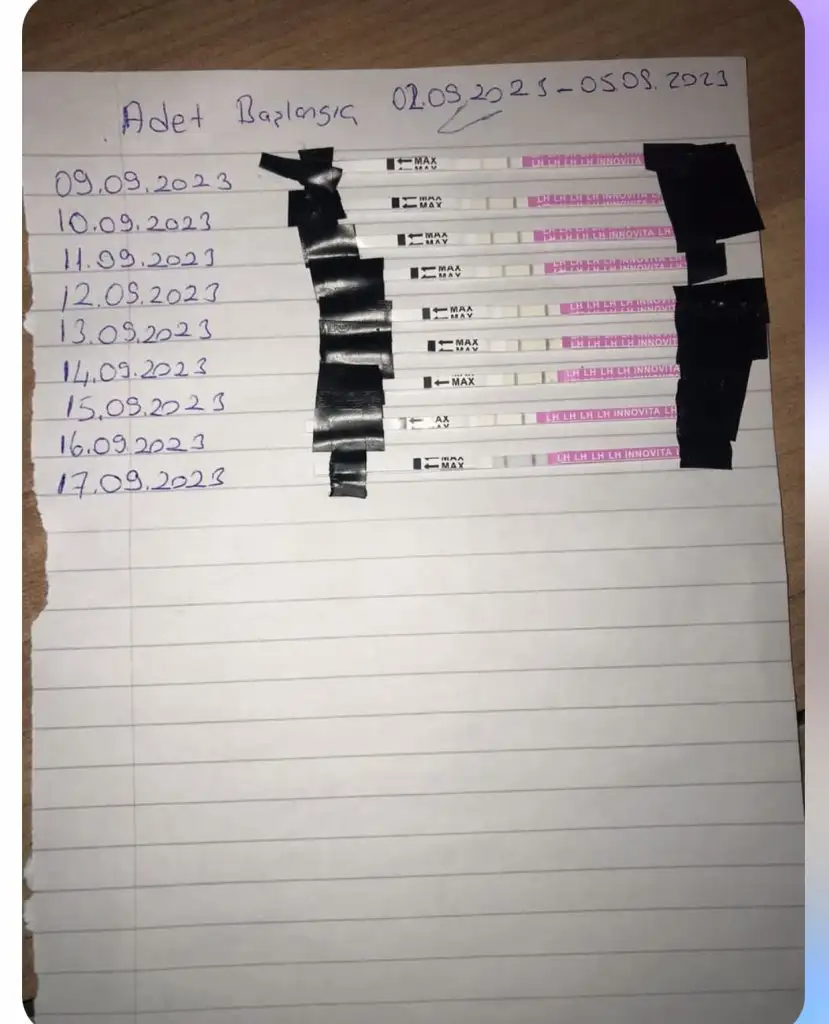 Adet Başlangıç 02.09.2023-05.09.2023
09.09.2023 MAX LH LH LH LH INNOVITA
10.09.2023 MAX
11.09.2023 MAX LH LH LH LH INNOVITA LH
12.09.2023 MAX
13.09.2023 MAX
14.09.2023 MAX LH LH LH LH INNOVIT
15.09.2023 MAX LH LH LH LH INNOVITA
16.09.2023 AX LH LH LH LH INNOVITA LH
17.09.2023 MAX LH LH LH LH INNOVITA